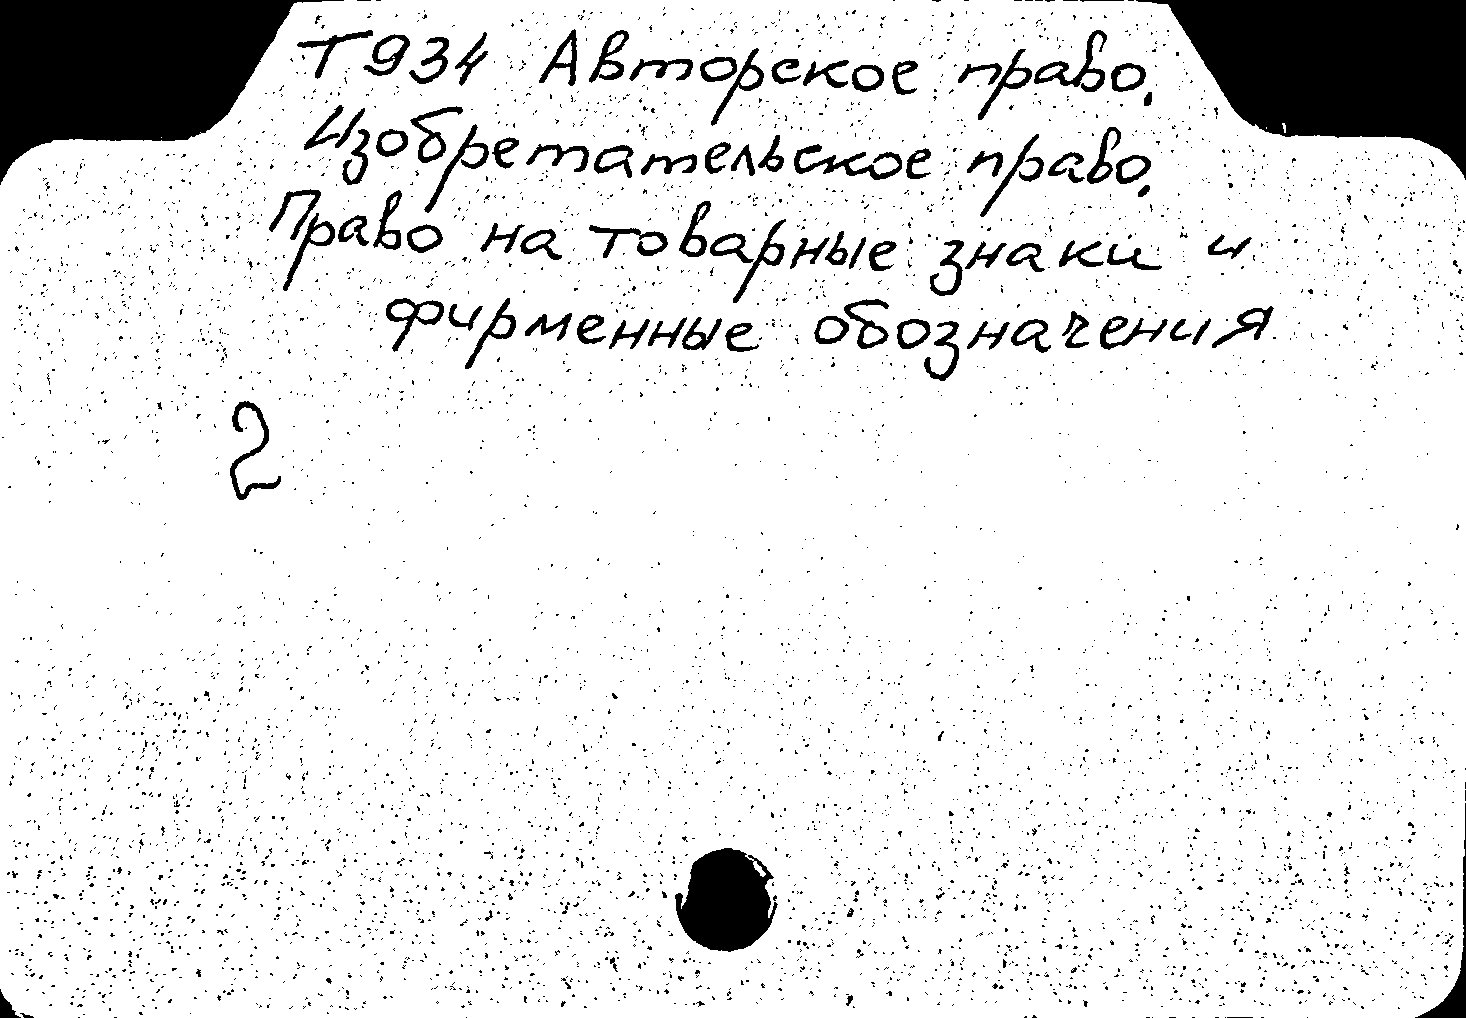 Т934 Авторское право.
Изобретательское право.
Право на товарные знаки и
фирменные обозначения
2